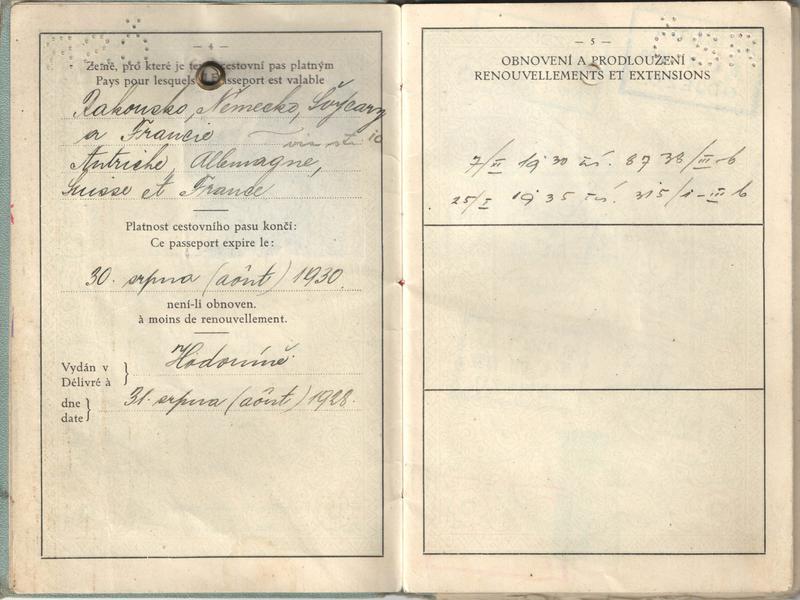 — 4 —
Země, pro které je tento cestovní pas platným
Pays pour lesquels le passeport est valable
Rakousko, Německo, Švýcary
a Francie
Autriche, Allemagne,
Suisse et France
Platnost cestovního pasu končí:
Ce passeport expire le:
30. srpna (aôut) 1930.
není-li obnoven.
à moins de renouvellement.
Vydán v
Délivré à
Hodoníně
dne
date
31. srpna (aôut) 1928.
— 5 —
OBNOVENÍ A PRODLOUŽENÍ
RENOUVELLEMENTS ET EXTENSIONS
7/II 1930 čís. 8738/III-b
25/I 1935 čís. 315/1-III b